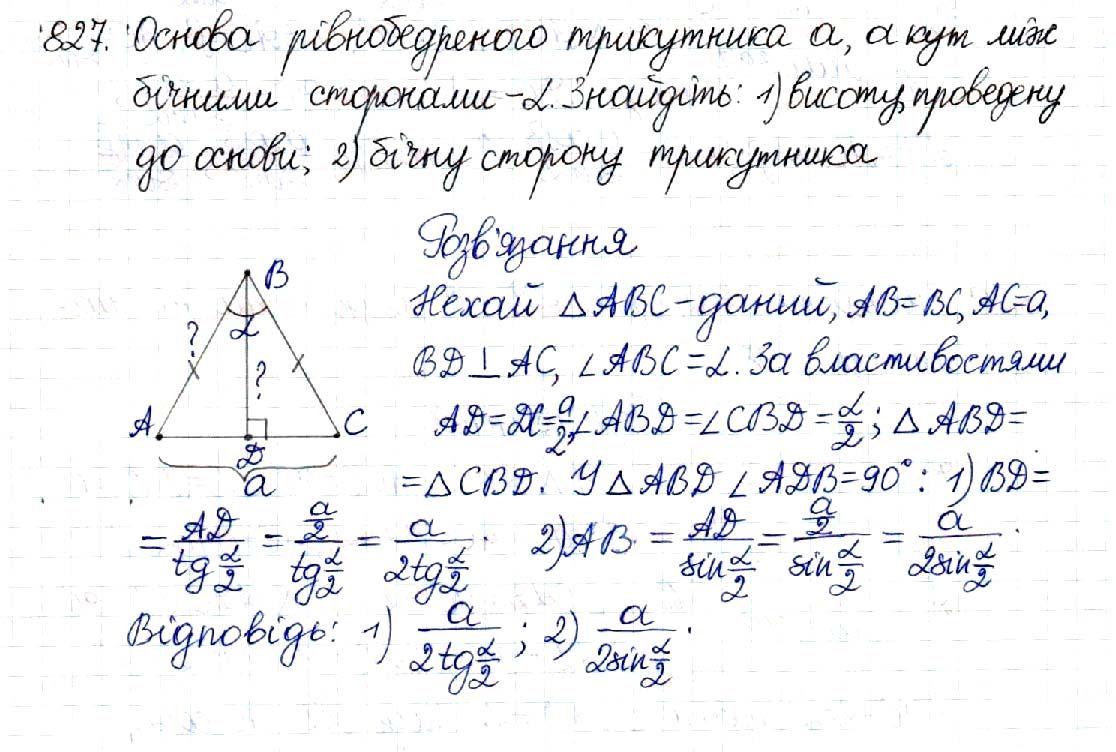 827. Основа рівнобедреного трикутника a, а кут між
бічними сторонами - α. Знайдіть: 1) висоту, проведену
до основи; 2) бічну сторону трикутника
Розв'язання
Нехай △ABC - даний, AB = BC, AC = a,
BD ⊥ AC, ∠ABC = α. За властивостями
AD = DC = a/2, ∠ABD = ∠CBD = α/2; △ABD =
= △CBD. У △ABD ∠ADB = 90°: 1) BD =
= AD/tg α/2 = a/2 / tg α/2 = a / 2tg α/2. 2) AB = AD / sin α/2 = a/2 / sin α/2 = a / 2sin α/2.
Відповідь: 1) a / 2tg α/2; 2) a / 2sin α/2.
B
α
?
?
A
C
D
a